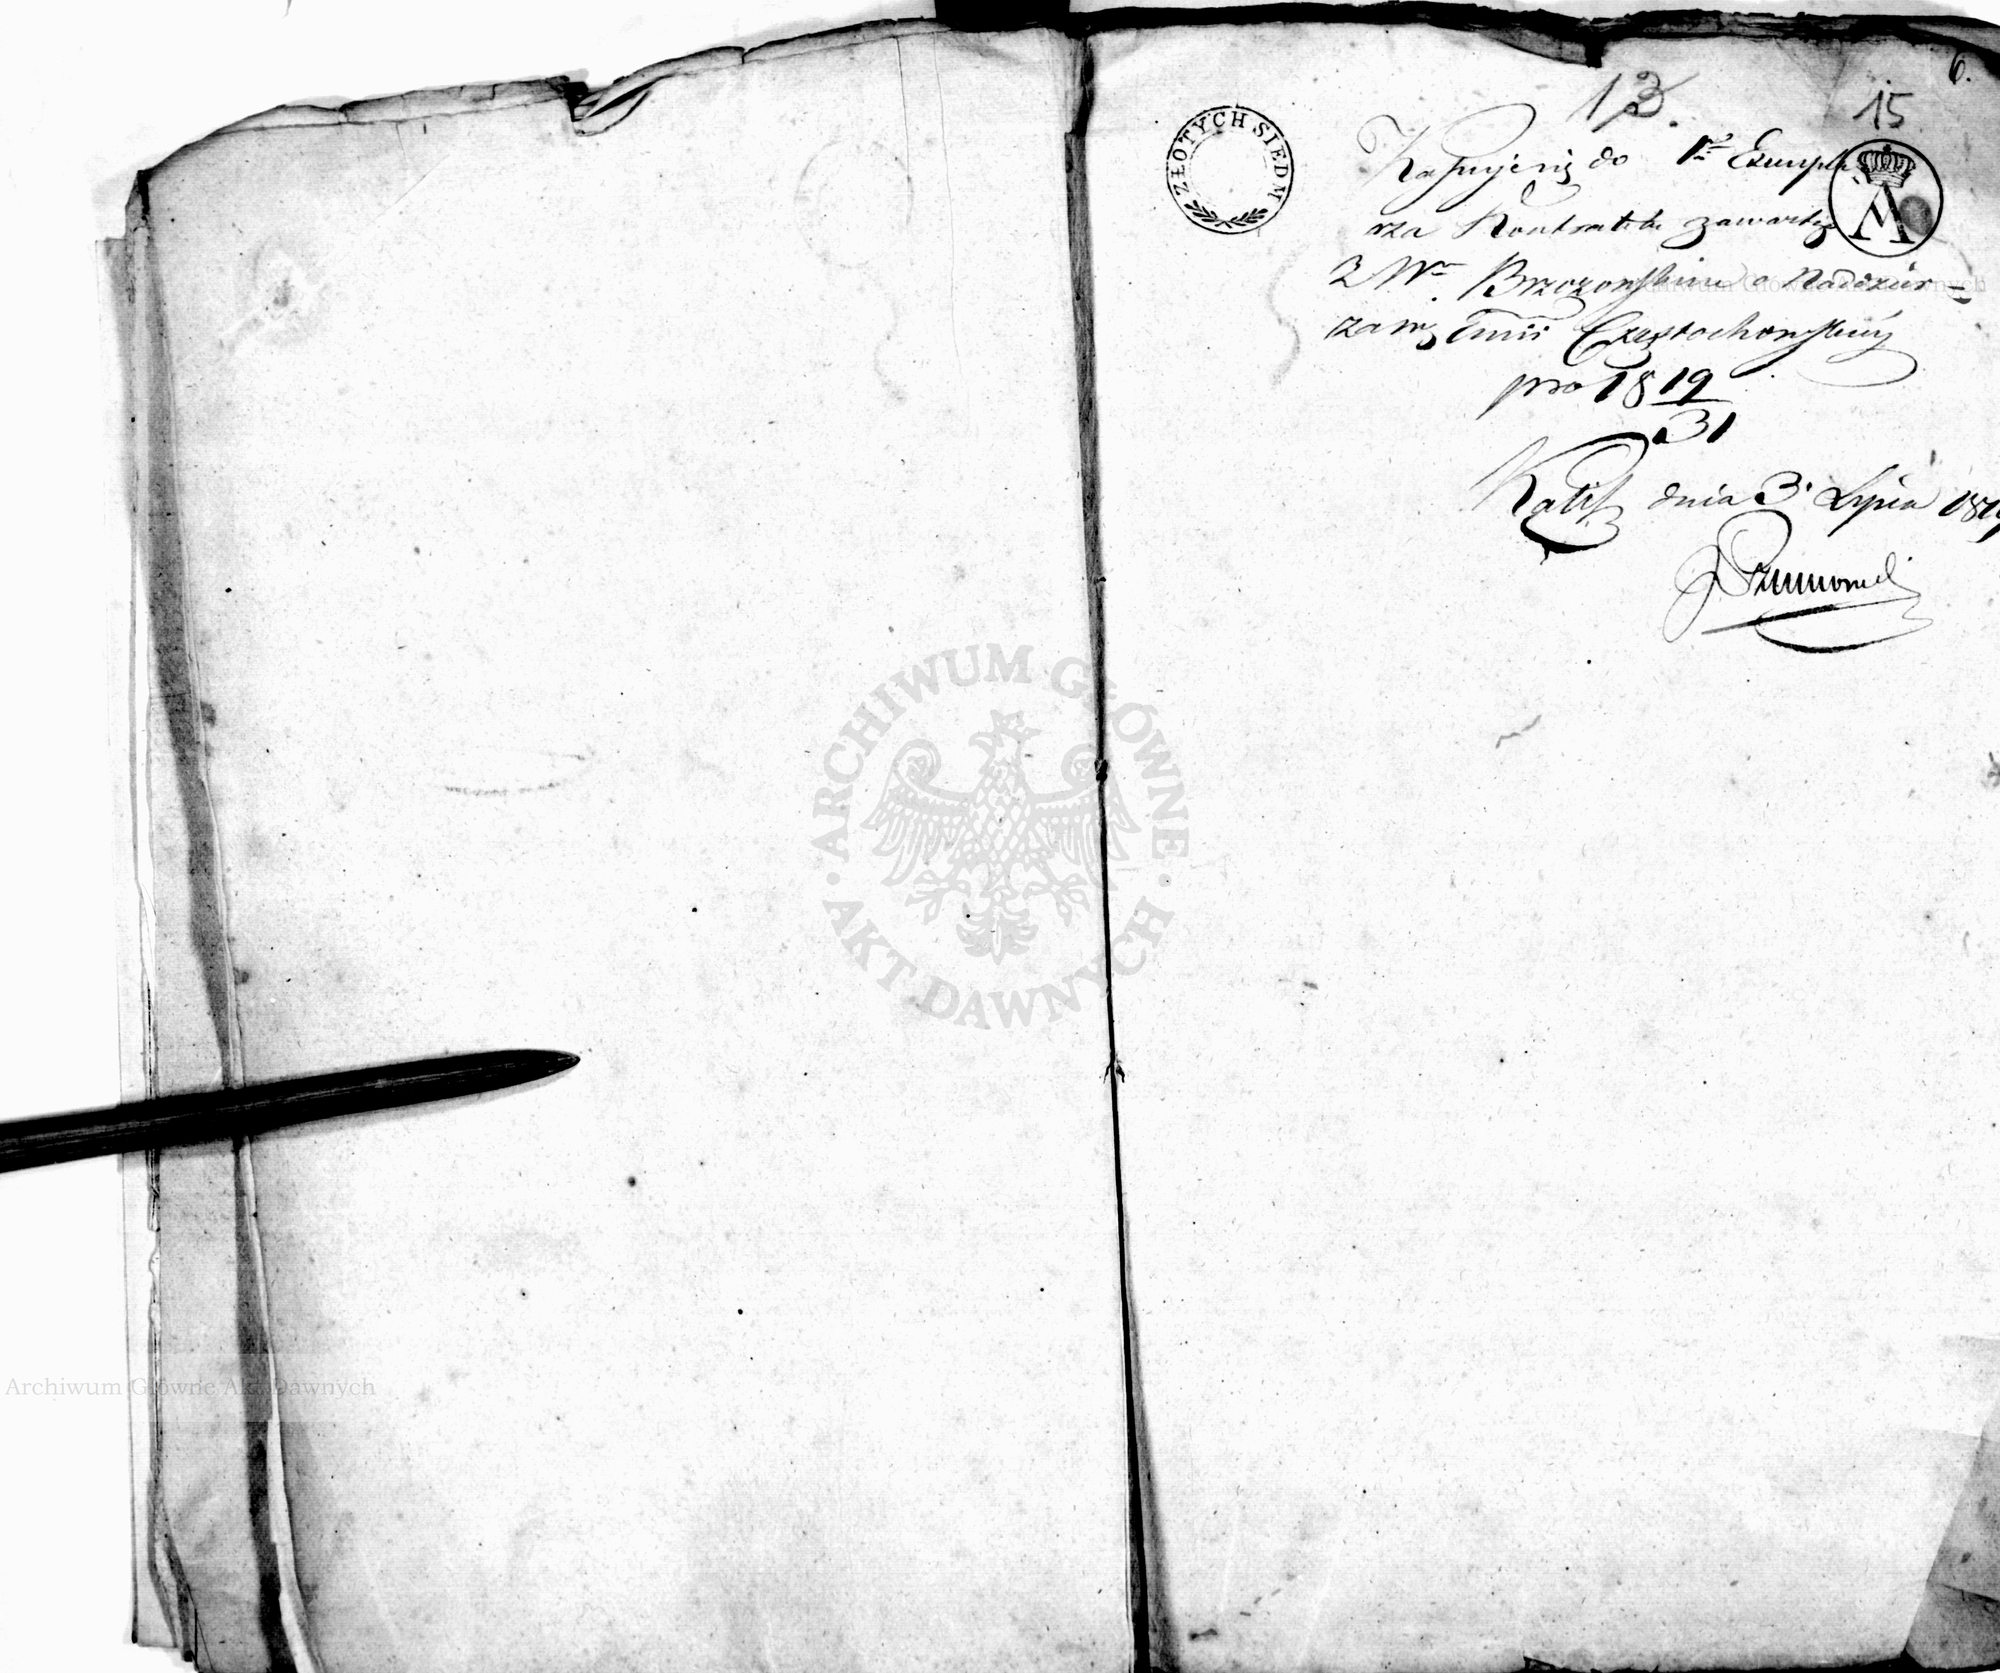 6.
13.
15
ZŁOTYCH SIEDM
Kassuje się do 1go Exempla
rza Kontraktu zawartego
z Wm Brzozowskim o Naddzier=
zawę Emii Częstochowskiey
pro 1819/31
Kalisz dnia 3. Lipca 1819
ARCHIWUM GŁÓWNE AKT DAWNYCH
Archiwum Główne Akt Dawnych
Archiwum Główne Akt Dawnych